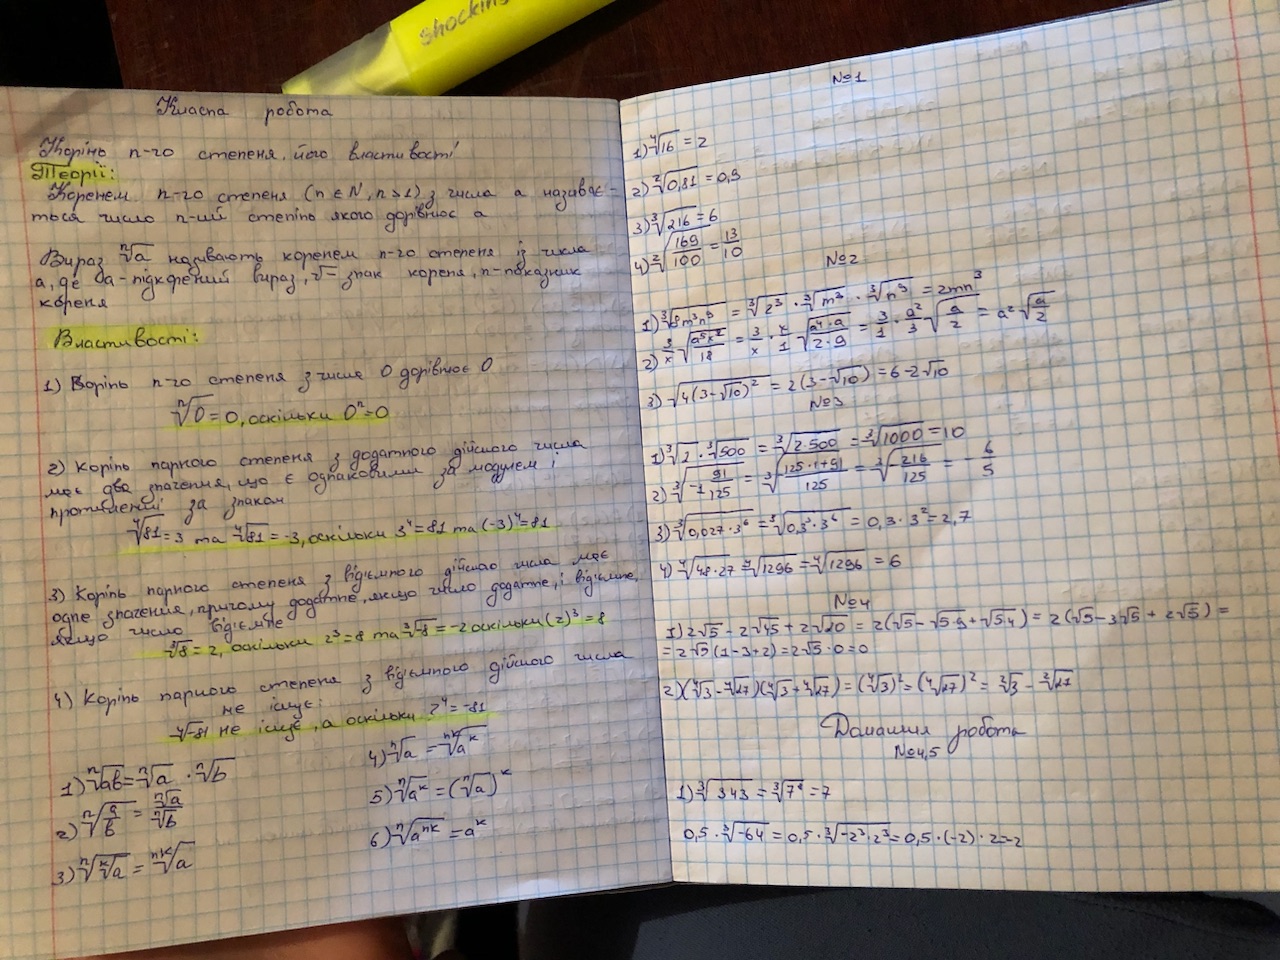 shocking
Класна робота
Корінь n-го степеня, його властивості
Теорії:
Коренем n-го степеня (n ∈ N, n > 1) з числа a називає-
ться число n-ий степінь якого дорівнює a
Вираз ⁿ√a називають коренем n-го степеня із числа
a, де a - підкорений вираз, √ - знак кореня, n - показник
кореня
Властивості:
1) Корінь n-го степеня з числа 0 дорівнює 0
ⁿ√0 = 0, оскільки 0ⁿ = 0
2) Корінь парного степеня з додатного дійсного числа
має два значення, що є однаковими за модулем і
протилежні за знаком
⁴√81 = 3 та ⁴√81 = -3, оскільки 3⁴ = 81 та (-3)⁴ = 81
3) Корінь парного степеня з відємного дійсного числа має
одне значення, причому додатне, якщо число додатне, і відємне,
якщо число відємне
³√8 = 2, оскільки 2³ = 8 та ³√-8 = -2 оскільки (2)³ = 8
4) Корінь парного степеня з відємного дійсного числа
не існує:
⁴√-81 не існує, а оскільки 2⁴ = -81
1) ⁿ√ab = ⁿ√a · ⁿ√b
2) ⁿ√(a/b) = ⁿ√a / ⁿ√b
3) ⁿ√ᵏ√a = ⁿᵏ√a
4) ⁿ√a = ⁿᵏ√aᵏ
5) ⁿ√aᵏ = (ⁿ√a)ᵏ
6) ⁿ√aⁿᵏ = aᵏ
№1
1) ⁴√16 = 2
2) ²√0,81 = 0,9
3) ³√216 = 6
4) ²√(169/100) = 13/10
№2
1) ³√8m³n⁹ = ³√2³ · ³√m³ · ³√n⁹ = 2mn³
2) 3/x √(a⁵x²/18) = 3/x · x/1 √(a⁴·a/2·9) = 3/1 · a²/3 √(a/2) = a² √(a/2)
3) √4(3-√10)² = 2(3-√10) = 6-2√10
№3
1) ³√2 · ³√500 = ³√2·500 = ³√1000 = 10
2) ³√(-1 91/125) = ³√(125·1+91/125) = ³√(-216/125) = -6/5
3) ³√0,027·3⁶ = ³√0,3³·3⁶ = 0,3·3² = 2,7
4) ⁴√48·27 = ⁴√1296 = ⁴√1296 = 6
№4
1) 2√5 - 2√45 + 2√20 = 2(√5 - √5·9 + √5·4) = 2(√5 - 3√5 + 2√5) =
= 2√5(1-3+2) = 2√5·0 = 0
2) (⁴√3 - ⁴√27)(⁴√3 + ⁴√27) = (⁴√3)² = (⁴√27)² = ²√3 - ²√27
Домашня робота
№4,5
1) ³√343 = ³√7³ = 7
0,5 · ³√-64 = 0,5 · ³√-2³·2³ = 0,5·(-2)·2 = -2